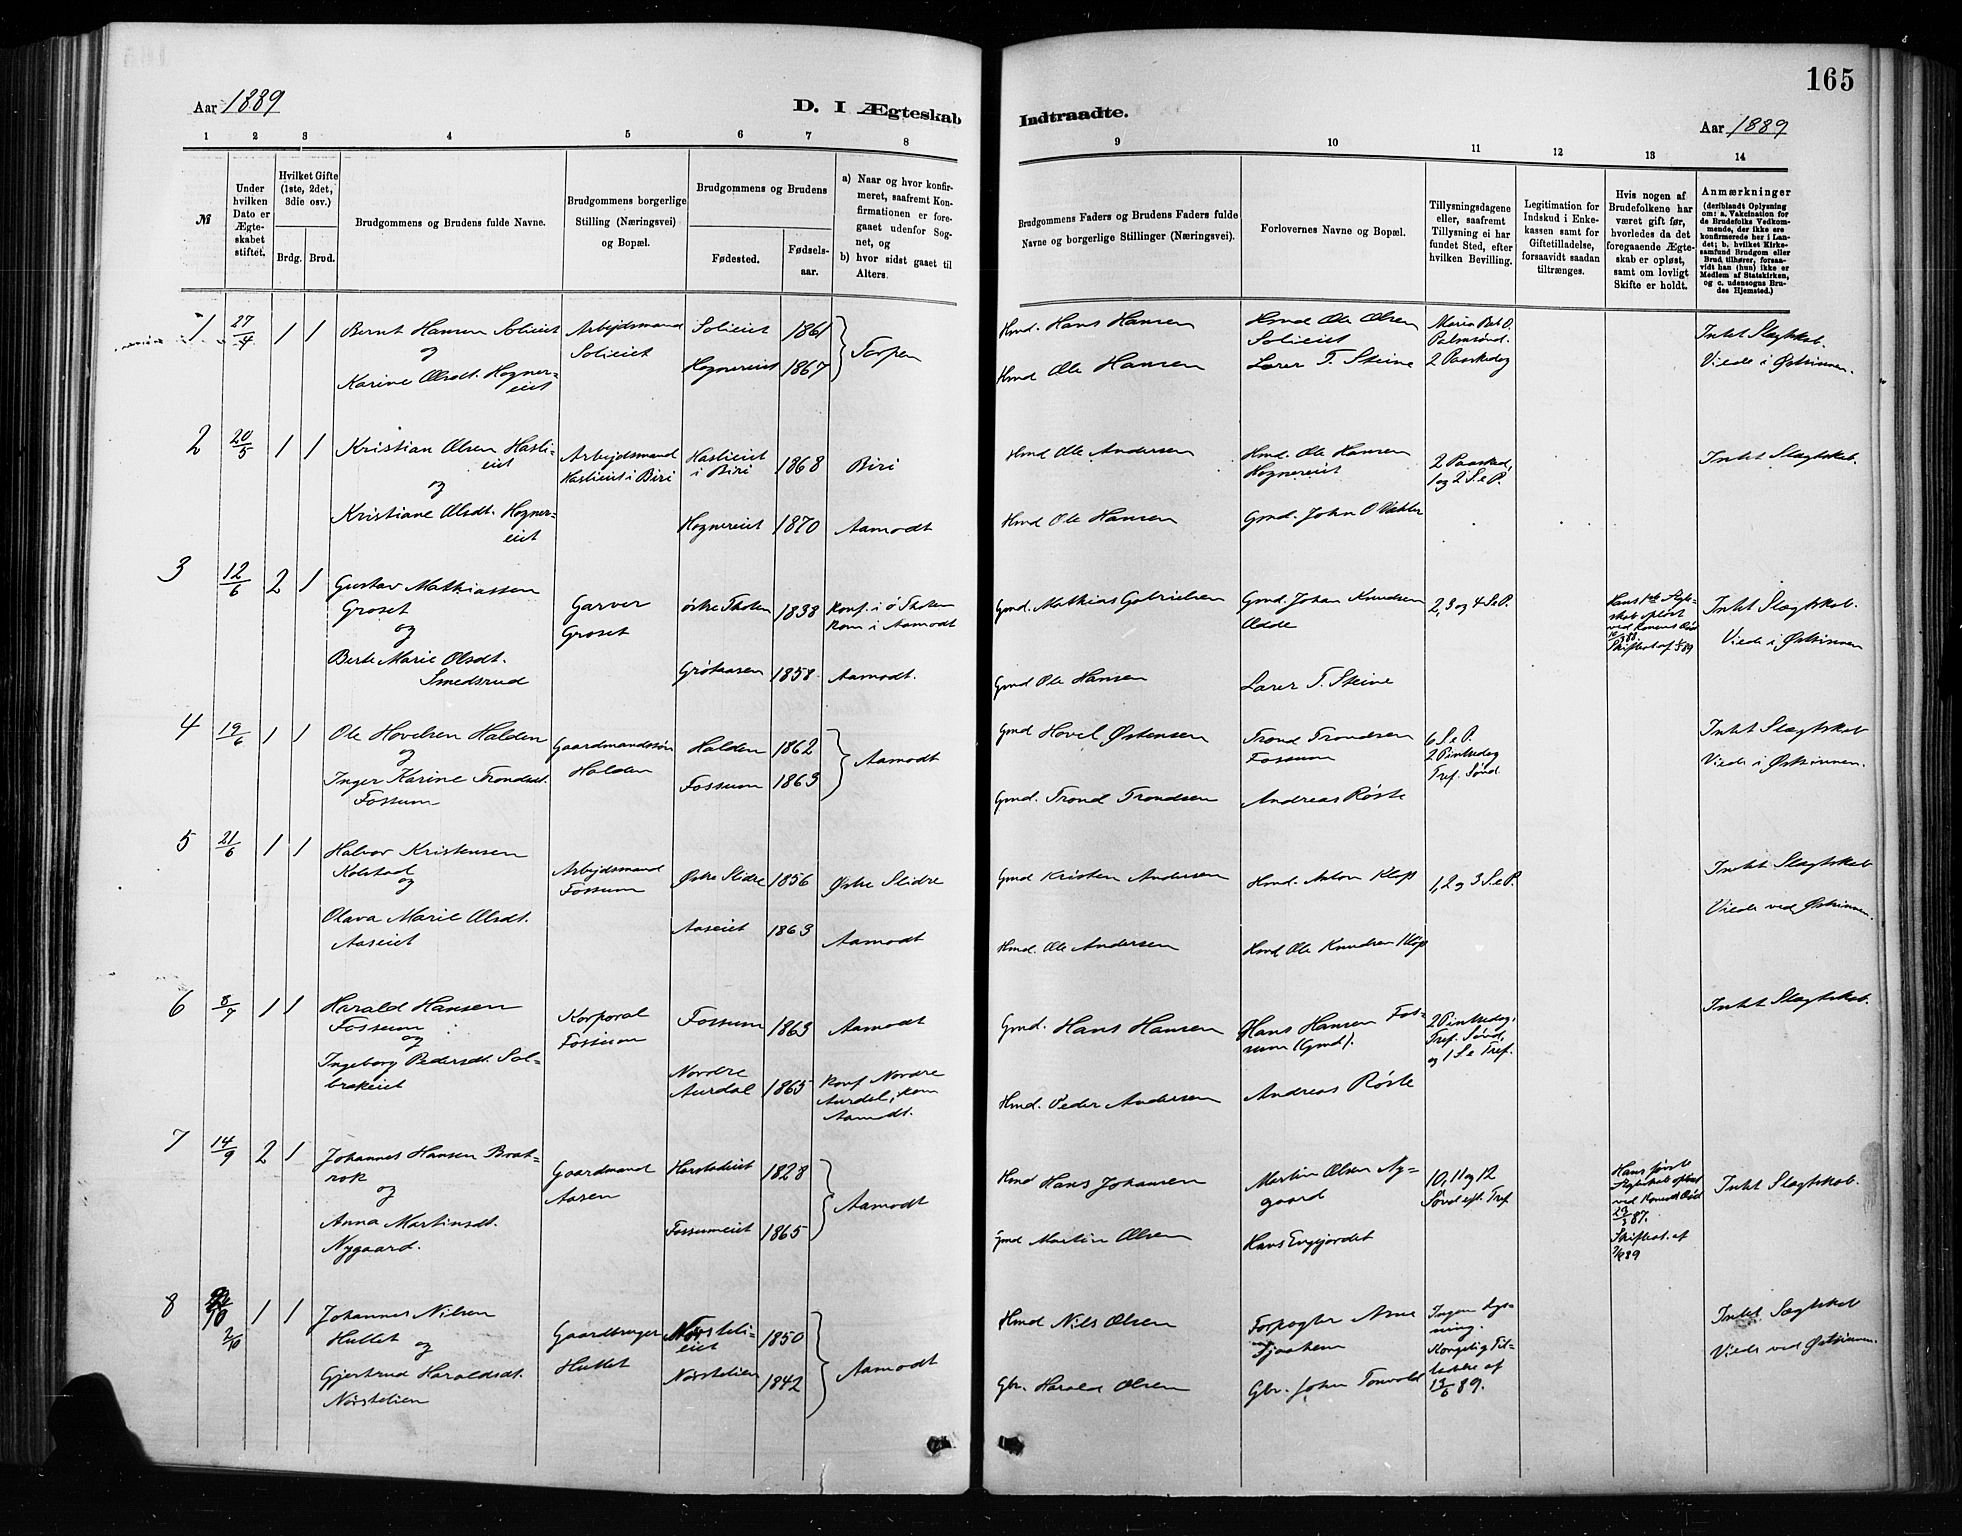 165
Aar 1889
D. I Ægteskab Indtraadte.
Aar 1889
1 2 3 4 5 6 7 8 9 10 11 12 13 14
№
Under hvilken Dato er Ægteskabet stiftet.
Hvilket Gifte (1ste, 2det, 3die osv.)
Brdg. Brud.
Brudgommens og Brudens fulde Navne.
Brudgommens borgerlige Stilling (Næringsvei) og Bopæl.
Brudgommens og Brudens
Fødested.
Fødsels-aar.
a) Naar og hvor konfirmeret, saafremt Konfirmationen er foregaaet udenfor Sognet, og
b) hvor sidst gaaet til Alters.
Brudgommens Faders og Brudens Faders fulde Navne og borgerlige Stillinger (Næringsvei).
Forlovernes Navne og Bopæl.
Tillysningsdagene eller, saafremt Tillysning ei har fundet Sted, efter hvilken Bevilling.
Legitimation for Indskud i Enkekassen samt for Giftetilladelse, forsaavidt saadan tiltrænges.
Hvis nogen af Brudefolkene har været gift før, hvorledes da det foregaaende Ægteskab er opløst, samt om lovligt Skifte er holdt.
Anmærkninger (deriblandt Oplysning om: a. Vakcination for de Brudefolks Vedkommende, der ikke ere konfirmerede her i Landet; b. hvilket Kirkesamfund Brudgom eller Brud tilhører, forsaavidt han (hun) ikke er Medlem af Statskirken, og c. udensogns Brudes Hjemsted.)
1 27/4 1 1 Bernt Hansen Solieiet
og
Karine Olsdt. Hognereiet
Arbejdsmand Solieiet
Solieiet 1861
Hognereiet 1867
Torpen
Hmd. Hans Hansen
Hmd Ole Hansen
Hmd Ole Olsen Solieiet
Lærer T. Steine
Maria Beb. D.
Palmsønd.
2 Paaskedag
Intet Slægtskab.
Viede i Østsinnen.
2 20/5 1 1 Kristian Olsen Haslieiet
og
Kristiane Olsdt. Hognereiet
Arbejdsmand Haslieiet i Biri
Haslieiet i Biri 1868 Biri
Hognereiet 1870 Aamodt
Hmd Ole Andersen
Hmd Ole Hansen
Hmd. Ole Hansen Hognereiet
Gmd. John O
2 Paaskad,
1 og 2 S.e.P.
Intet Slægtskab.
3 12/6 2 1 Gustav Mathiassen
Groset
og
Berte Marie Olsdt.
Smedsrud
Garver Groset
østre Thoten 1838 Konf. i ø Thoten
Kom i Aamodt
Grøtaasen 1858 Aamodt.
Gmd. Mathias Gabrielsen
Gmd Ole Hansen
Gmd. Johan Knudsen
Lærer T. Steine
2, 3 og 4 S.e.P.
Hans 1ste Ægteskab opløst ved Konens Død
Skifteat. af
Intet Slægtskab.
Viede i Østsinnen
4 19/6 1 1 Ole Hovelsen Halden
og
Inger Karine Trondsdt.
Fossum
Gaardmandssøn
Halden
Halden 1862
Fossum 1863
Aamodt
Gmd Hovel Østensen
Gmd. Trond Trondsen
Trond Trondsen Fossum
Andreas Røste
6 S.e.P.
2 Pintsedag
Tref. Sønd.
Intet Slægtskab
Viede i Østsinnen.
5 21/6 1 1 Halvor Kristensen
Kolstad
og
Olava Marie Olsdt.
Aaseiet
Arbejdsmand
Fossum
Østre Slidre 1856 Østre Slidre
Aaseiet 1863 Aamodt
Gmd Kristen Andersen
Hmd. Ole Andersen
Hmd. Anton Kløp
Hmd Ole Knudsen Kløp
1, 2 og 3 S.e.P.
Intet Slægtskab
Viede ved Østsinnen.
6 8/7 1 1 Harald Hansen
Fossum
og
Ingeborg Pedersdt. Solbrækeiet
Korporal
Fossum
Fossum 1863 Aamodt
Nordre Aurdal 1865 Konf Nordre
Aurdal, kom
Aamodt.
Gmd. Hans Hansen
Hmd. Peder Andersen
Hans Hansen Fossum (Gmd).
Andreas Røste
2 Pintsedag,
Tref. Sønd,
og 1 S.e. Tref.
Intet Slægtskab.
7 14/9 2 1 Johannes Hansen Bratrok
og
Anna Martinsdt.
Nygaard.
Gaardmand
Aasen
Harstadeiet 1828
Fossumeiet 1865
Aamodt
Hmd Hans Johansen
Gmd Martin Olsen
Martin Olsen Nygaard
Hans Engejordet
10, 11 og 12
Sønd eft. Tref
Hans første Ægteskab opløst ved Konens Død
87.
Skifteat. af
Intet Slægtskab.
8 2/10 1 1 Johannes Nilsen
Hullet
og
Gjertrud Haraldsdt.
Nørstelien
Gaardbruger
Hullet
Nørstelieiet 1850
Nørstelien 1842
Aamodt
Hmd Nils Olsen
Gbr. Harald Olsen
Forpagter Arne
Gbr. John Tonvold
Ingen Lysning.
Kongelig Tilladelse af
13/6 89.
Intet Slægtskab
Viede ved Østsinnen.